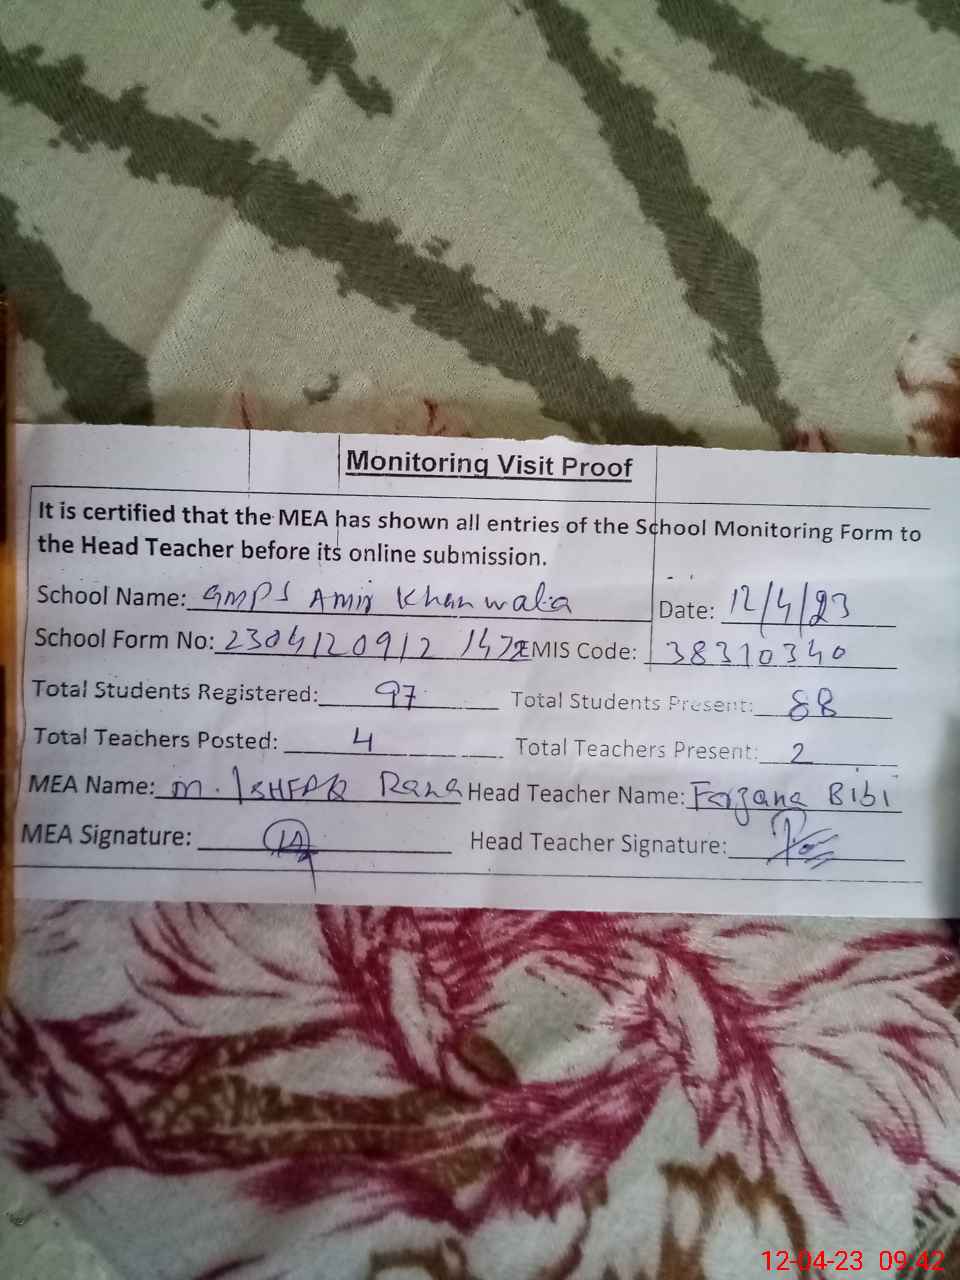 Monitoring Visit Proof
It is certified that the MEA has shown all entries of the School Monitoring Form to
the Head Teacher before its online submission.
School Name: GMPS Amir Khan walia Date: 12/4/23
School Form No: 2304120912 1472 EMIS Code: 38310340
Total Students Registered: 97 Total Students Present: 88
Total Teachers Posted: 4 Total Teachers Present: 2
MEA Name: M. ISHFAQ Rana Head Teacher Name: Farzana Bibi
MEA Signature: Head Teacher Signature:
12-04-23 09:42